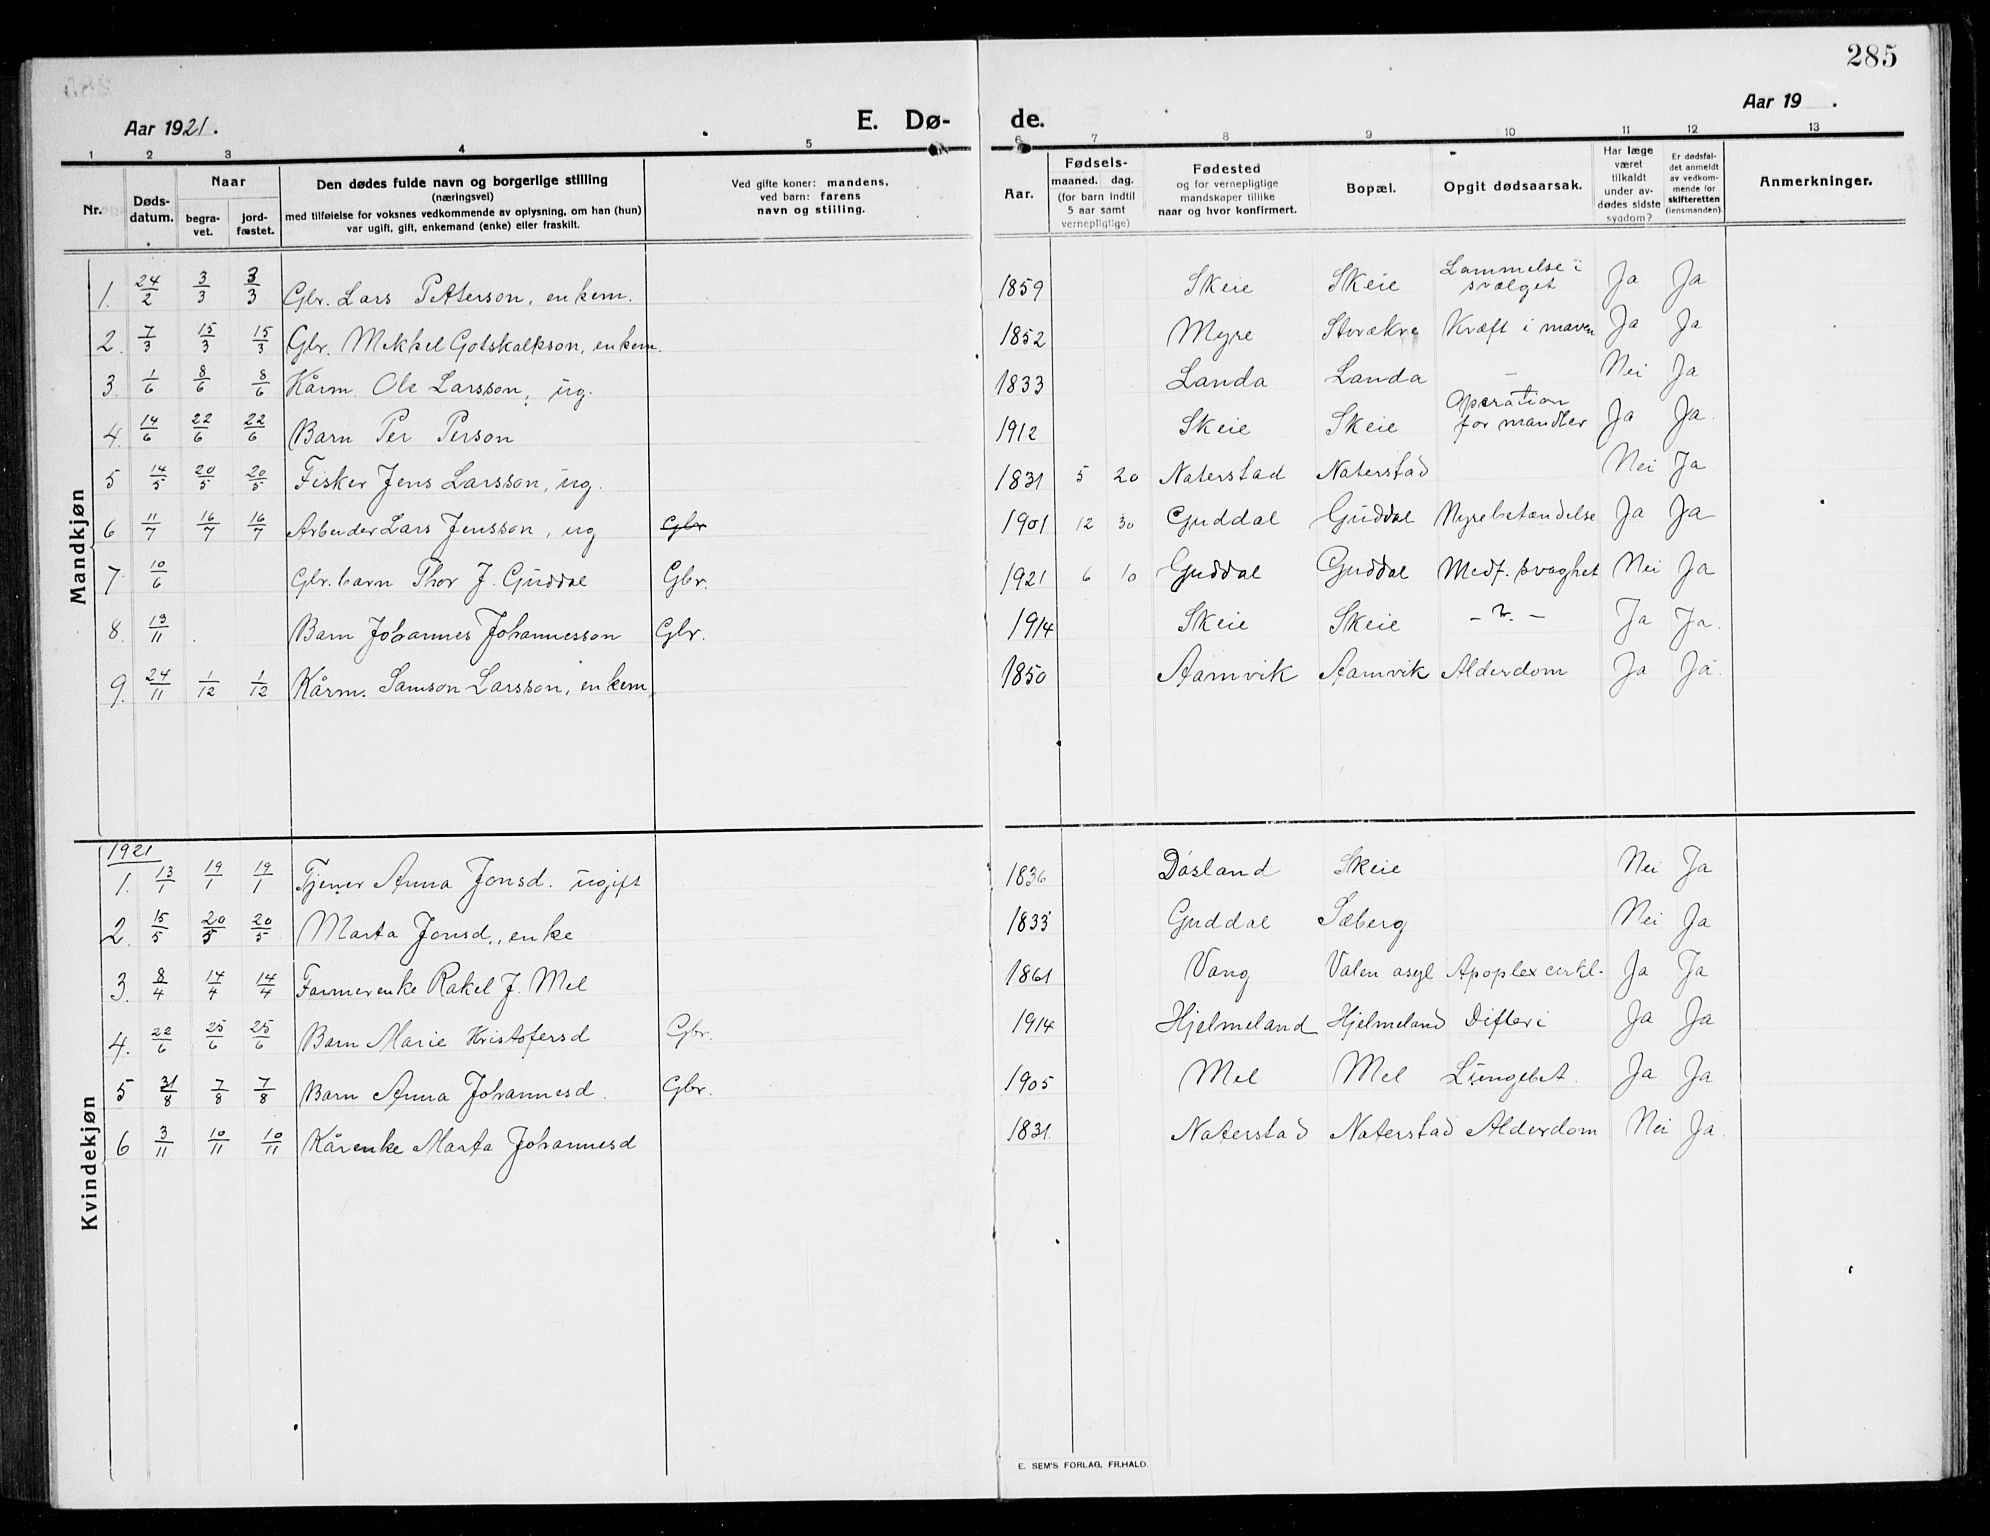 285
Aar 1921.
E. Dø- de.
Aar 19 .
1 2 3 4 5 6 7 8 9 10 11 12 13
Nr.
Døds-
datum.
Naar
begra-
vet.
jord-
fæstet.
Den dødes fulde navn og borgerlige stilling
(næringsvei)
med tilføielse for voksnes vedkommende av oplysning, om han (hun)
var ugift, gift, enkemand (enke) eller fraskilt.
Ved gifte koner: mandens,
ved barn: farens
navn og stilling.
Aar.
Fødsels-
maaned. dag.
(for barn indtil
5 aar samt
vernepligtige)
Fødested
og for vernepligtige
mandskaper tillike
naar og hvor konfirmert.
Bopæl.
Opgit dødsaarsak.
Har læge
været
tilkaldt
under av-
dødes sidste
sygdom?
Er dødsfal-
det anmeldt
av vedkom-
mende for
skifteretten
(lensmanden).
Anmerkninger.
Mandkjøn
1. 24/2 3/3 3/3 Gbr. Lars Petterson, enkem. 1859 Skeie Skeie Lammelse i svælget Ja Ja
2. 7/3 15/3 15/3 Gbr. Mikkel Gotskalkson, enkem. 1852 Myre Storækre Kræft i maven Ja Ja
3. 1/6 8/6 8/6 Kårm. Ole Larsson, ug. 1833 Landa Landa — Nei Ja
4. 14/6 22/6 22/6 Barn Per Person 1912 Skeie Skeie Operation for mandler Ja Ja.
5 14/5 20/5 20/5 Fisker Jens Larsson, ug. 1831 5 20 Naterstad Naterstad Nei Ja
6 11/7 16/7 16/7 Arbeider Lars Jensson, ug Gbr 1901 12 30 Guddal Guddal Nyrebetændelse Ja Ja
7. 10/6 Gbr. barn Thor J. Guddal Gbr. 1921 6 10 Guddal Guddal Medf. svaghet Nei Ja
8. 13/11 Barn Johannes Johannesson Gbr. 1914 Skeie Skeie — ? — Ja Ja.
9. 24/11 1/12 1/12 Kårm. Samson Larsson, enkem. 1850 Aamvik Aamvik Alderdom Ja Ja.
Kvindekjøn
1921
1. 13/1 19/1 19/1 Tjener Anna Jonsd. ugift 1836 Døsland Skeie Nei Ja
2. 15/5 20/5 20/5 Marta Jonsd., enke 1833 Guddal Sæberg Nei Ja
3. 8/4 14/4 14/4 Farmerenke Rakel J. Mel 1861 Vang Valen asyl Apoplex cerkl. Ja Ja
4. 22/6 25/6 25/6 Barn Marie Kristofersd Gbr. 1914 Hjelmeland Hjelmeland Difteri Ja Ja
5 31/8 7/8 7/8 Barn Anna Johannesd. Gbr. 1905 Mel Mel Lungebet. Ja Ja
6 3/11 10/11 10/11 Kårenke Marta Johannesd 1831. Naterstad Naterstad Alderdom Nei Ja.
E. SEM'S FORLAG, FR.HALD.